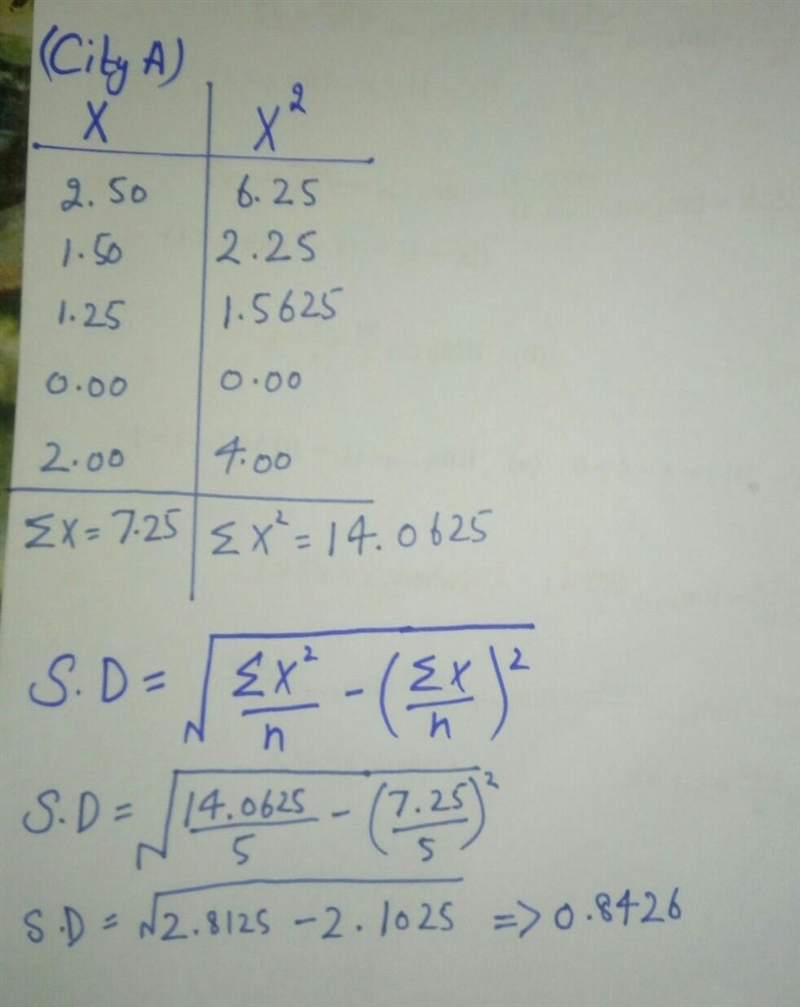 (City A)
X | X²
2.50 | 6.25
1.50 | 2.25
1.25 | 1.5625
0.00 | 0.00
2.00 | 4.00
ΣX = 7.25 | ΣX² = 14.0625
S.D = √(ΣX²/n - (ΣX/n)²)
S.D = √(14.0625/5 - (7.25/5)²)
S.D = √(2.8125 - 2.1025) => 0.8426